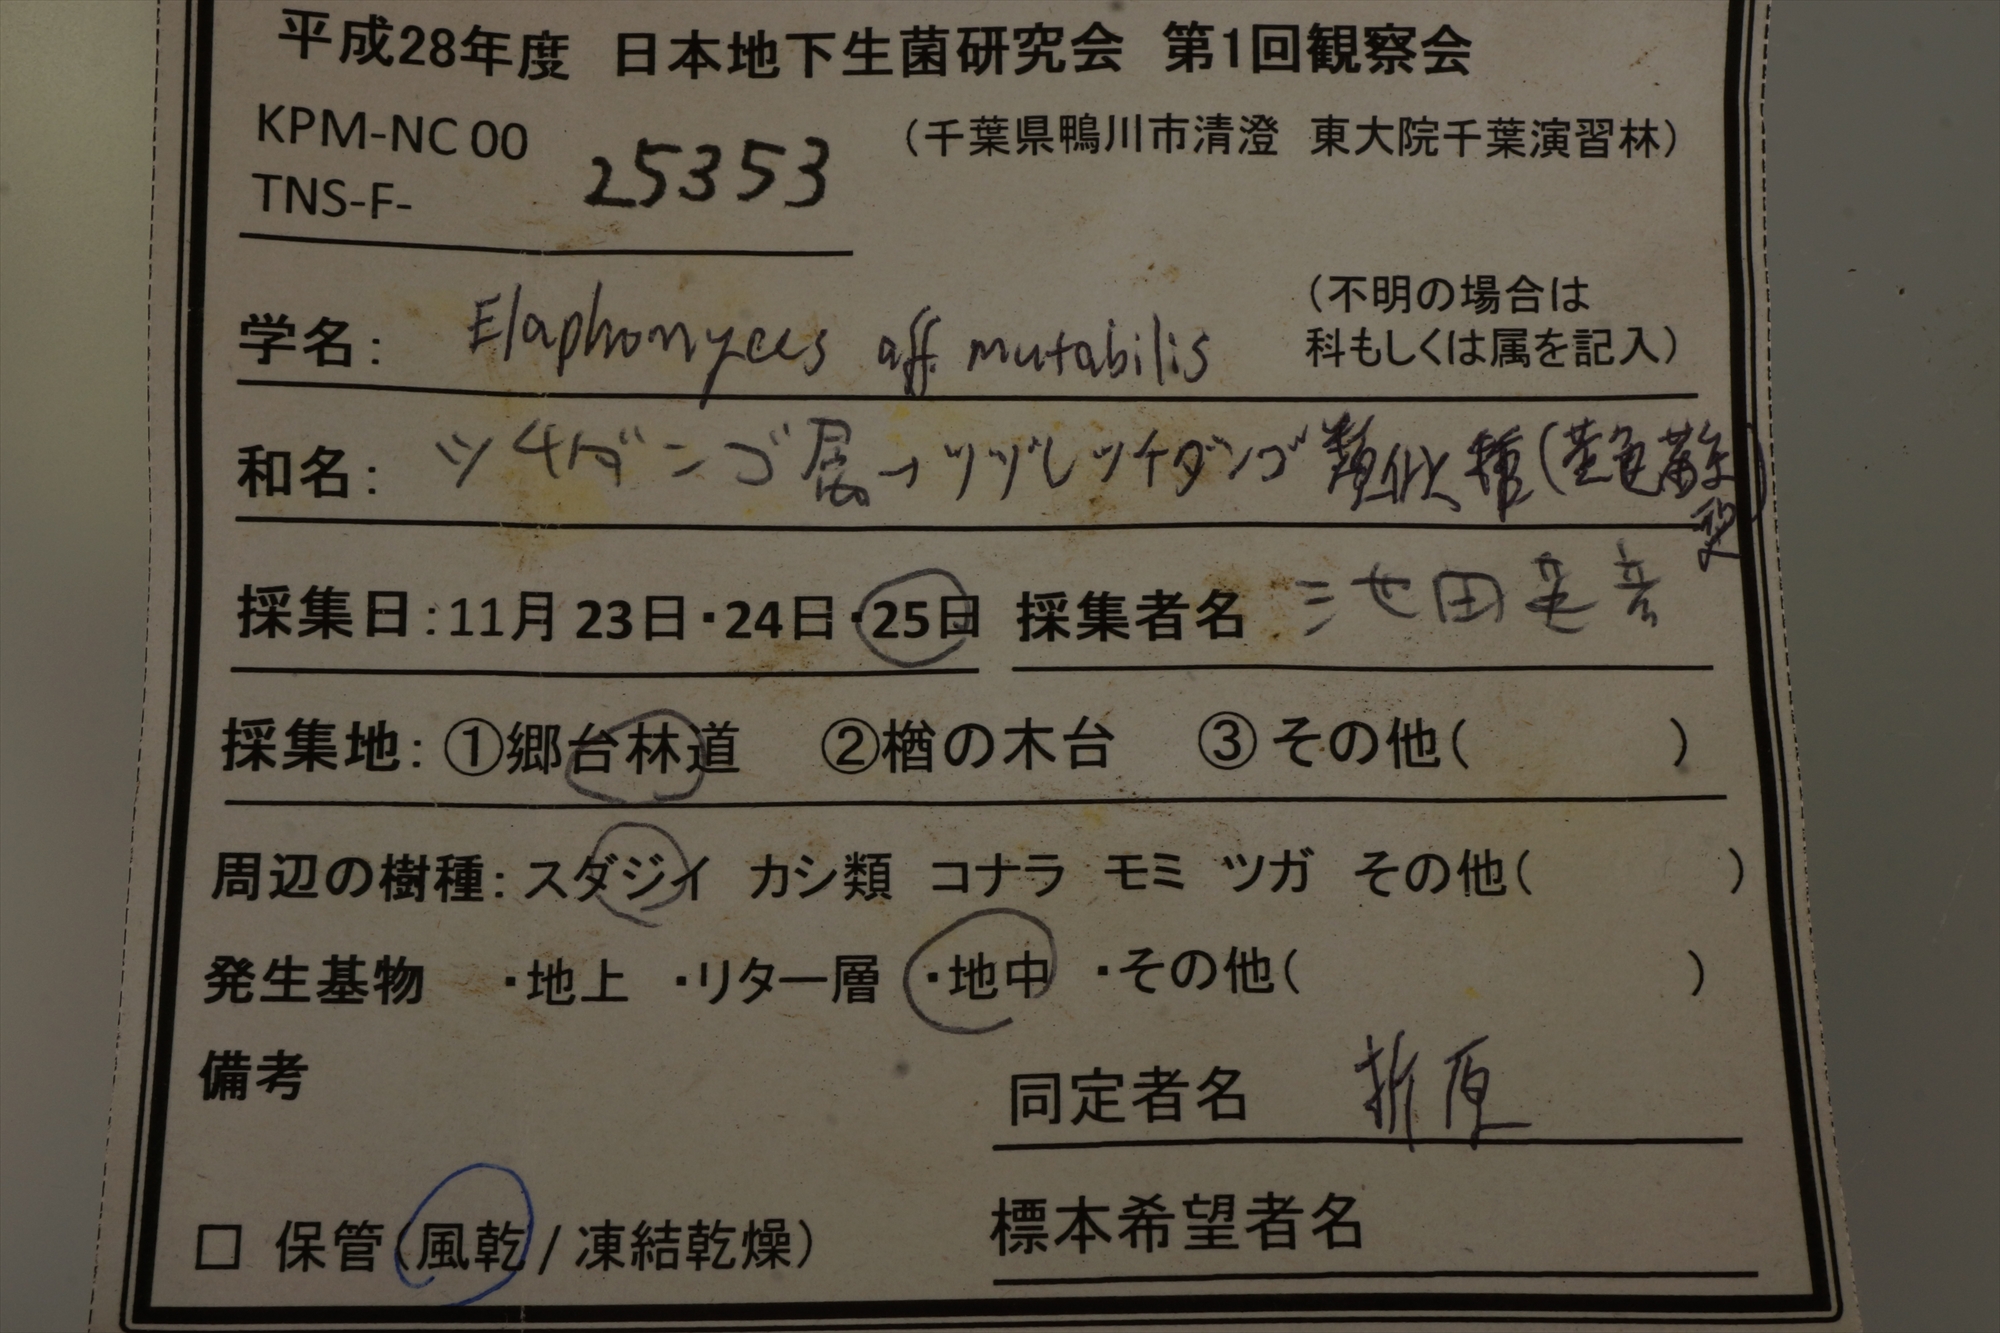 平成28年度 日本地下生菌研究会 第1回観察会
KPM-NC 00 25353
TNS-F-
（千葉県鴨川市清澄 東大院千葉演習林）
学名： Elaphomyces aff. mutabilis （不明の場合は
科もしくは属を記入）
和名： ツチダンゴ属→ツヅレツチダンゴ類似種（菫色菌糸
型）
採集日：11月 23日・24日・25日 採集者名 池田
採集地：①郷台林道 ②楢の木台 ③その他（ ）
周辺の樹種：スダジイ カシ類 コナラ モミ ツガ その他（ ）
発生基物 ・地上 ・リター層 ・地中 ・その他（ ）
備考
同定者名 折原
□ 保管（風乾/凍結乾燥）
標本希望者名